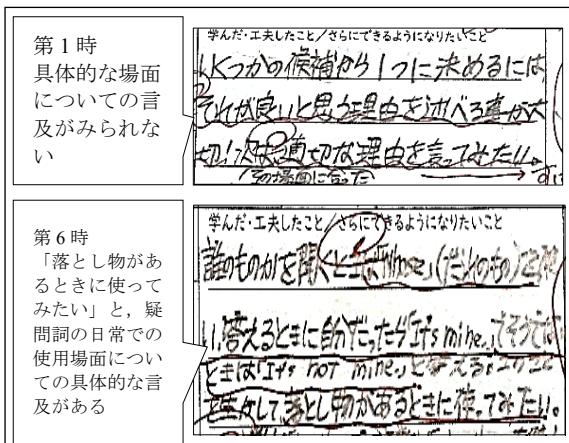 第1時
具体的な場面
についての言
及がみられな
い
学んだ・工夫したこと/さらにできるようになりたいこと
いくつかの候補から1つに決めるには
それが良いと思う理由を述べる事が大
切!次は、適切な理由を言ってみたい。
(その場面に合った)
第6時
「落とし物があ
るときに使って
みたい」と，疑
問詞の日常での
使用場面につい
ての具体的な言
及がある
学んだ・工夫したこと/さらにできるようになりたいこと
誰のものかを聞くときは「Whose」(だれのもの)を
い、答えるときに自分だったら「It's mine.」、そうでな
ときは「It's not mine.」と答える。
して、落とし物があるときに使ってみたい。